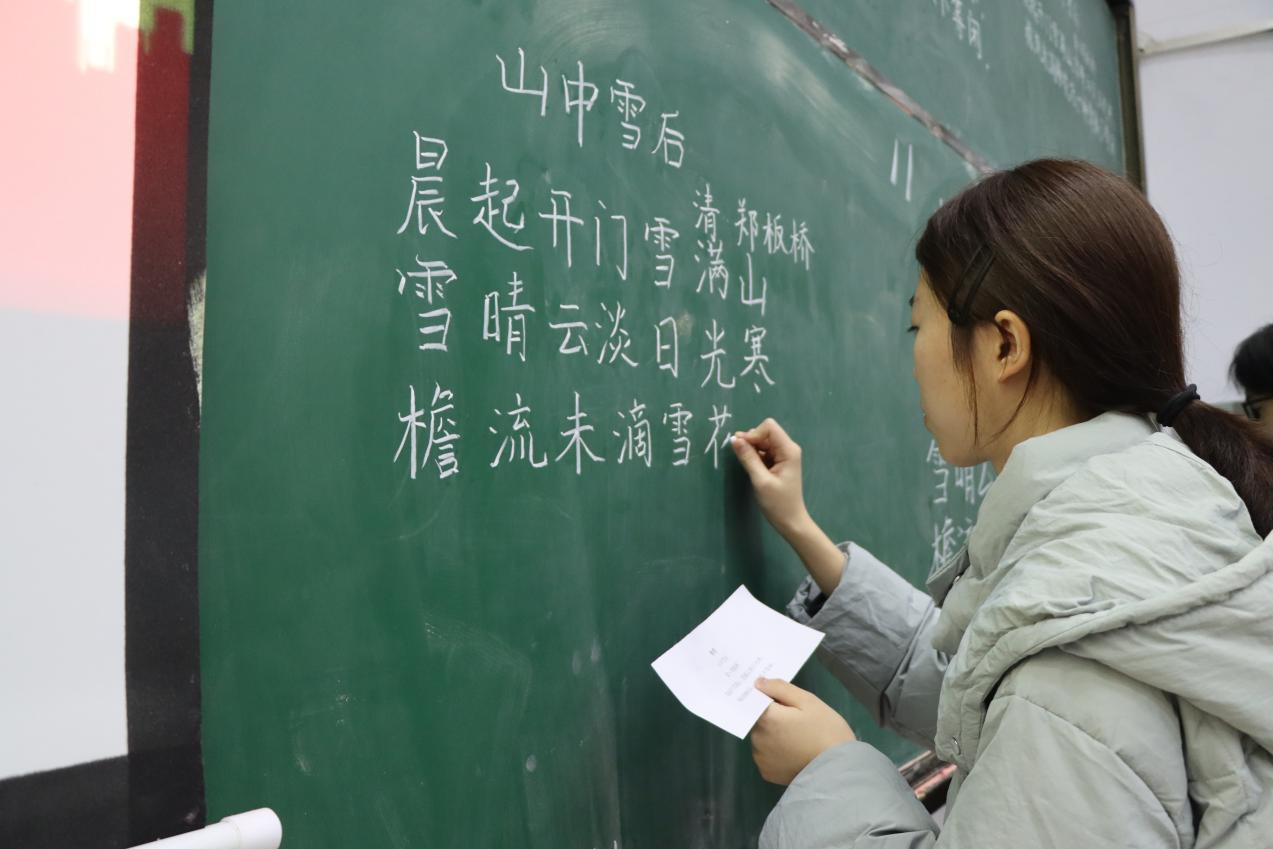 山中雪后
清 郑板桥
晨起开门雪满山
雪晴云淡日光寒
檐流未滴雪花
11
雪晴云
檐流